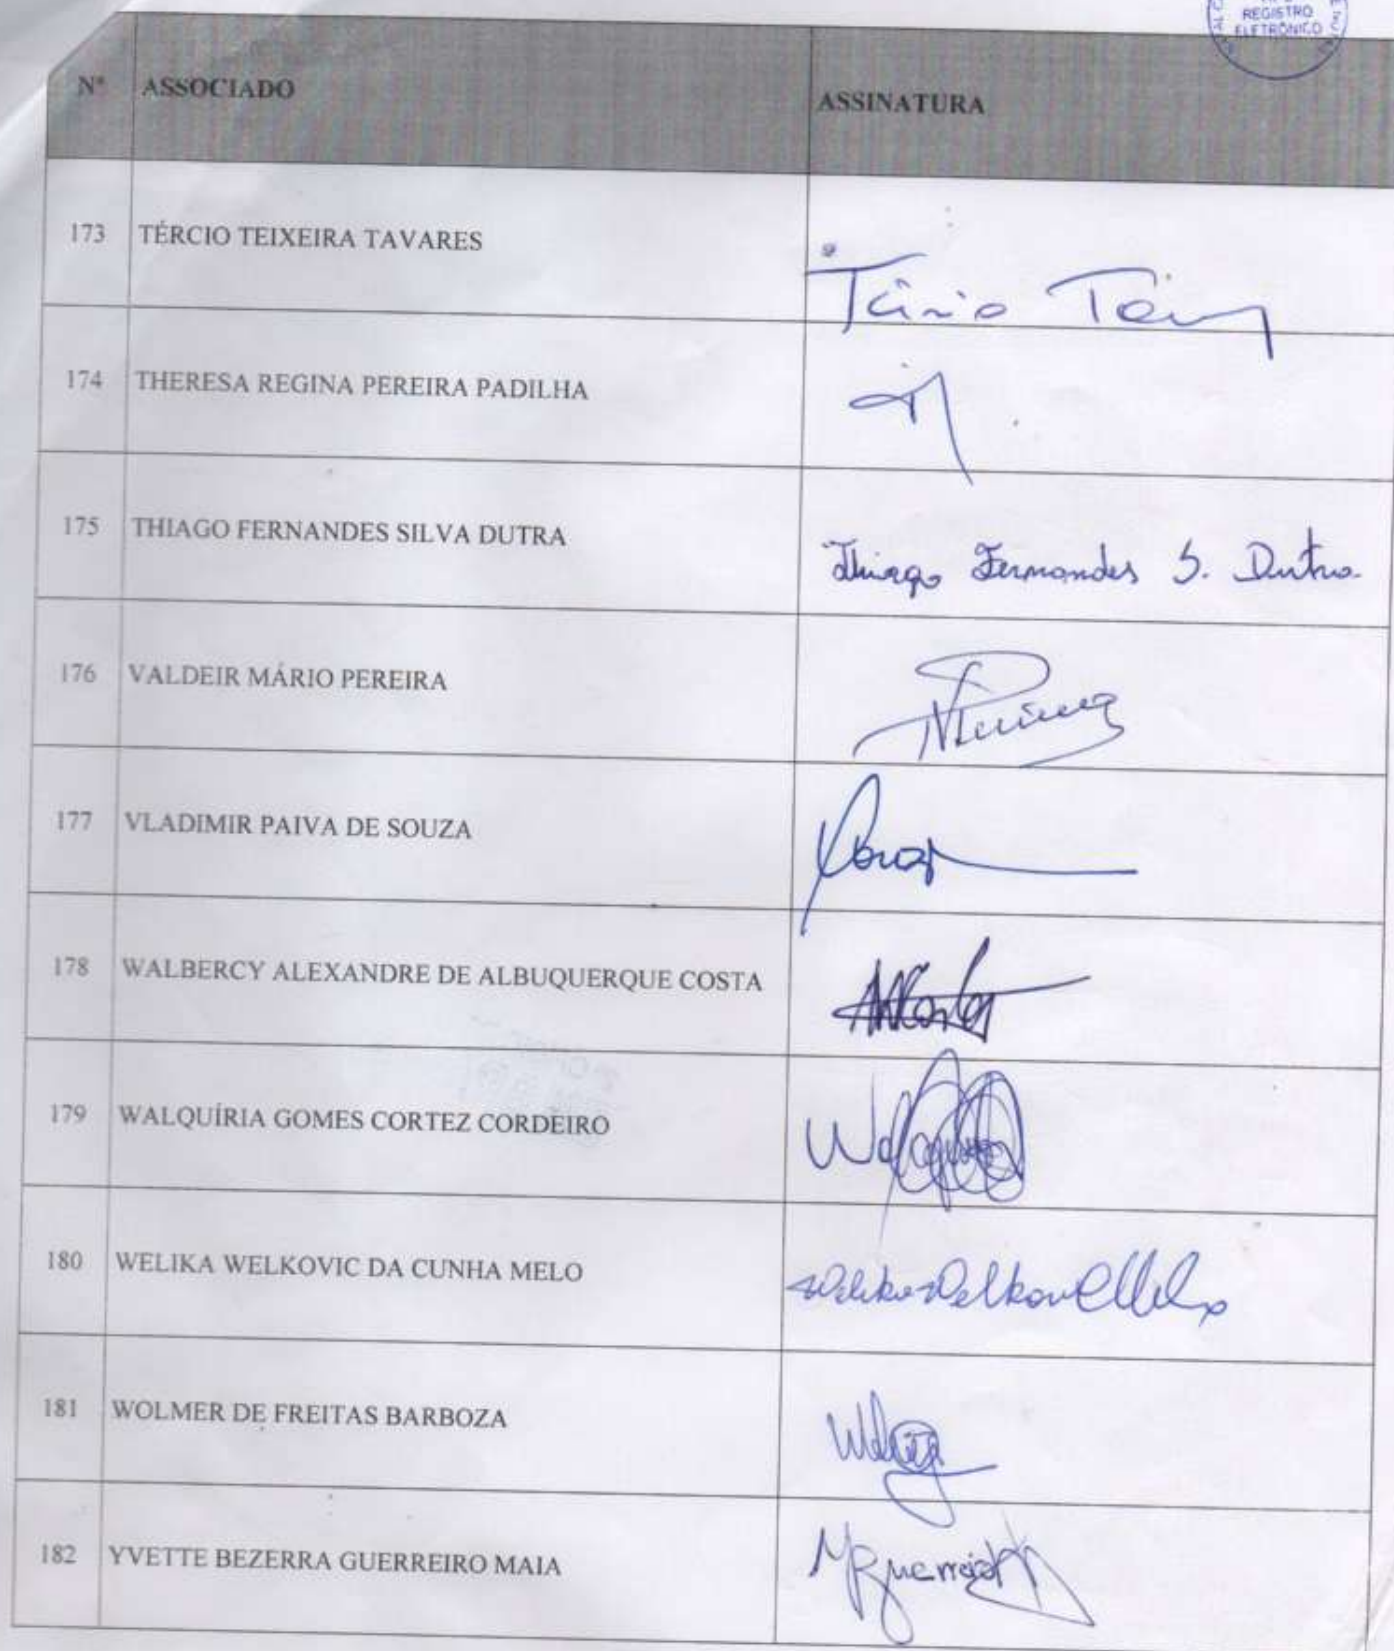 REGISTRO
ELETRÔNICO
Nº ASSOCIADO ASSINATURA
173 TÉRCIO TEIXEIRA TAVARES
174 THERESA REGINA PEREIRA PADILHA
175 THIAGO FERNANDES SILVA DUTRA Thiago Fernandes S. Dutra
176 VALDEIR MÁRIO PEREIRA
177 VLADIMIR PAIVA DE SOUZA
178 WALBERCY ALEXANDRE DE ALBUQUERQUE COSTA
179 WALQUÍRIA GOMES CORTEZ CORDEIRO
180 WELIKA WELKOVIC DA CUNHA MELO
181 WOLMER DE FREITAS BARBOZA
182 YVETTE BEZERRA GUERREIRO MAIA